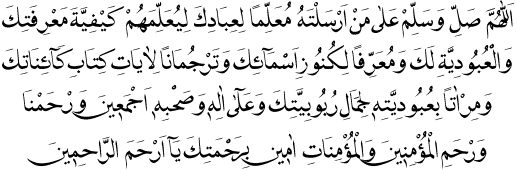 اَللّٰهُمَّ صَلِّ وَسَلِّمْ عَلٰى مَنْ اَرْسَلْتَهُ مُعَلِّمًا لِعِبَادِكَ لِيُعَلِّمَهُمْ كَيْفِيَّةَ مَعْرِفَتِكَ
وَالْعُبُودِيَّةِ لَكَ وَمُعَرِّفًا لِكُنُوزِ اَسْمَٓائِكَ وَتَرْجُمَانًا لِاٰيَاتِ كِتَابِ كَٓائِنَاتِكَ
وَمِرْاٰتًا بِعُبُودِيَّتِهِ لِجَمَالِ رُبُوبِيَّتِكَ وَعَلٰى اٰلِهِ وَصَحْبِهِ اَجْمَعِينَ وَرْحَمْنَا
وَرْحَمِ الْمُؤْمِنِينَ وَالْمُؤْمِنَاتِ اٰمِينَ بِرَحْمَتِكَ يَٓا اَرْحَمَ الرَّاحِمِينَ